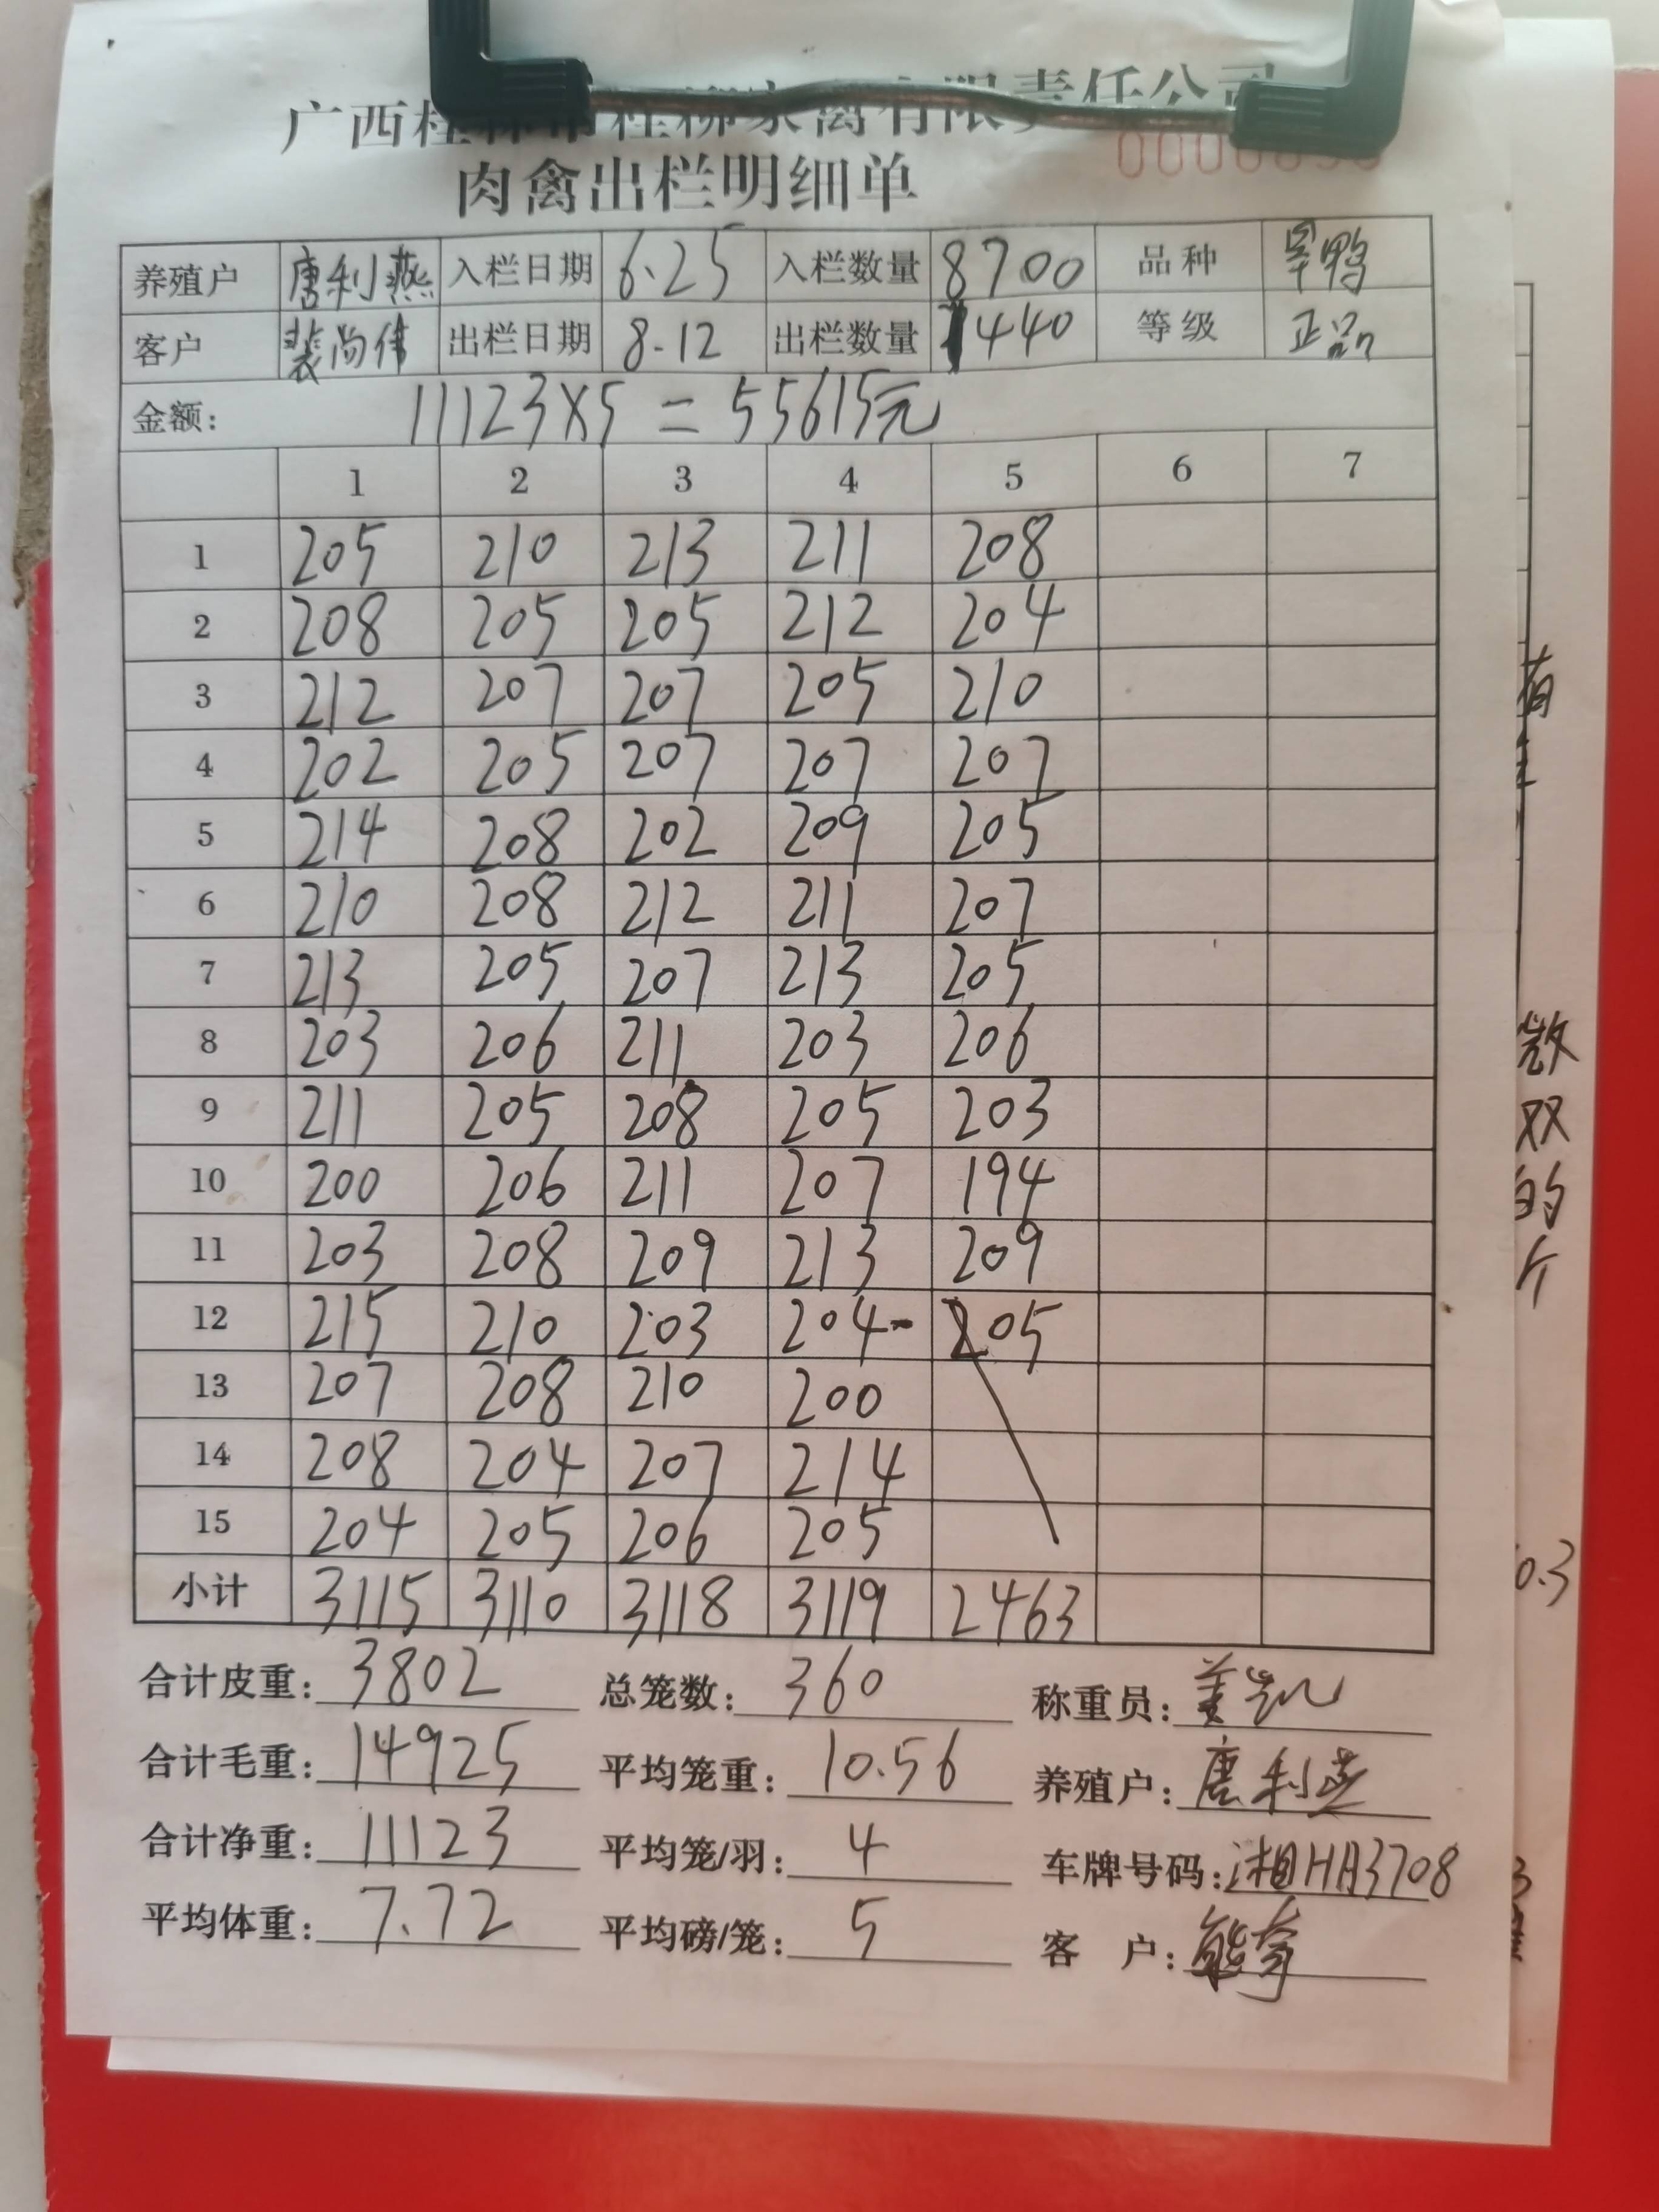 广西桂林市桂柳家禽有限责任公司
肉禽出栏明细单
养殖户 唐利燕 入栏日期 6.25 入栏数量 8700 品种 旱鸭
客户 裴尚伟 出栏日期 8.12 出栏数量 1440 等级 正品
金额: 11123X5=55615元
1 2 3 4 5 6 7
1 205 210 213 211 208
2 208 205 205 212 204
3 212 207 207 205 210
4 202 205 207 207 207
5 214 208 202 209 205
6 210 208 212 211 207
7 213 205 207 213 205
8 203 206 211 203 206
9 211 205 208 205 203
10 200 206 211 207 194
11 203 208 209 213 209
12 215 210 203 204 205
13 207 208 210 200
14 208 204 207 214
15 204 205 206 205
小计 3115 3110 3118 3119 2463
合计皮重: 3802 总笼数: 360 称重员:
合计毛重: 14925 平均笼重: 10.56 养殖户: 唐利燕
合计净重: 11123 平均笼/羽: 4 车牌号码: 湘HA3708
平均体重: 7.72 平均磅/笼: 5 客 户:
数
双
的
斤
0.3